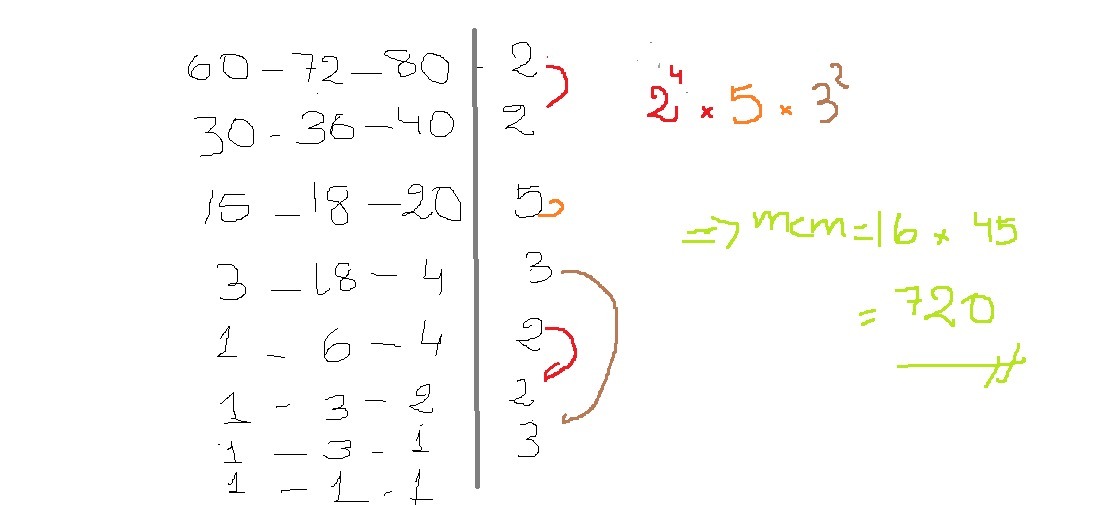 60 - 72 - 80 - 2
30 - 36 - 40 2
15 - 18 - 20 5
3 - 18 - 4 3
1 - 6 - 4 2
1 - 3 - 2 2
1 - 3 - 1 3
1 - 1 - 1
2⁴ × 5 × 3²
=> mcm = 16 × 45
= 720